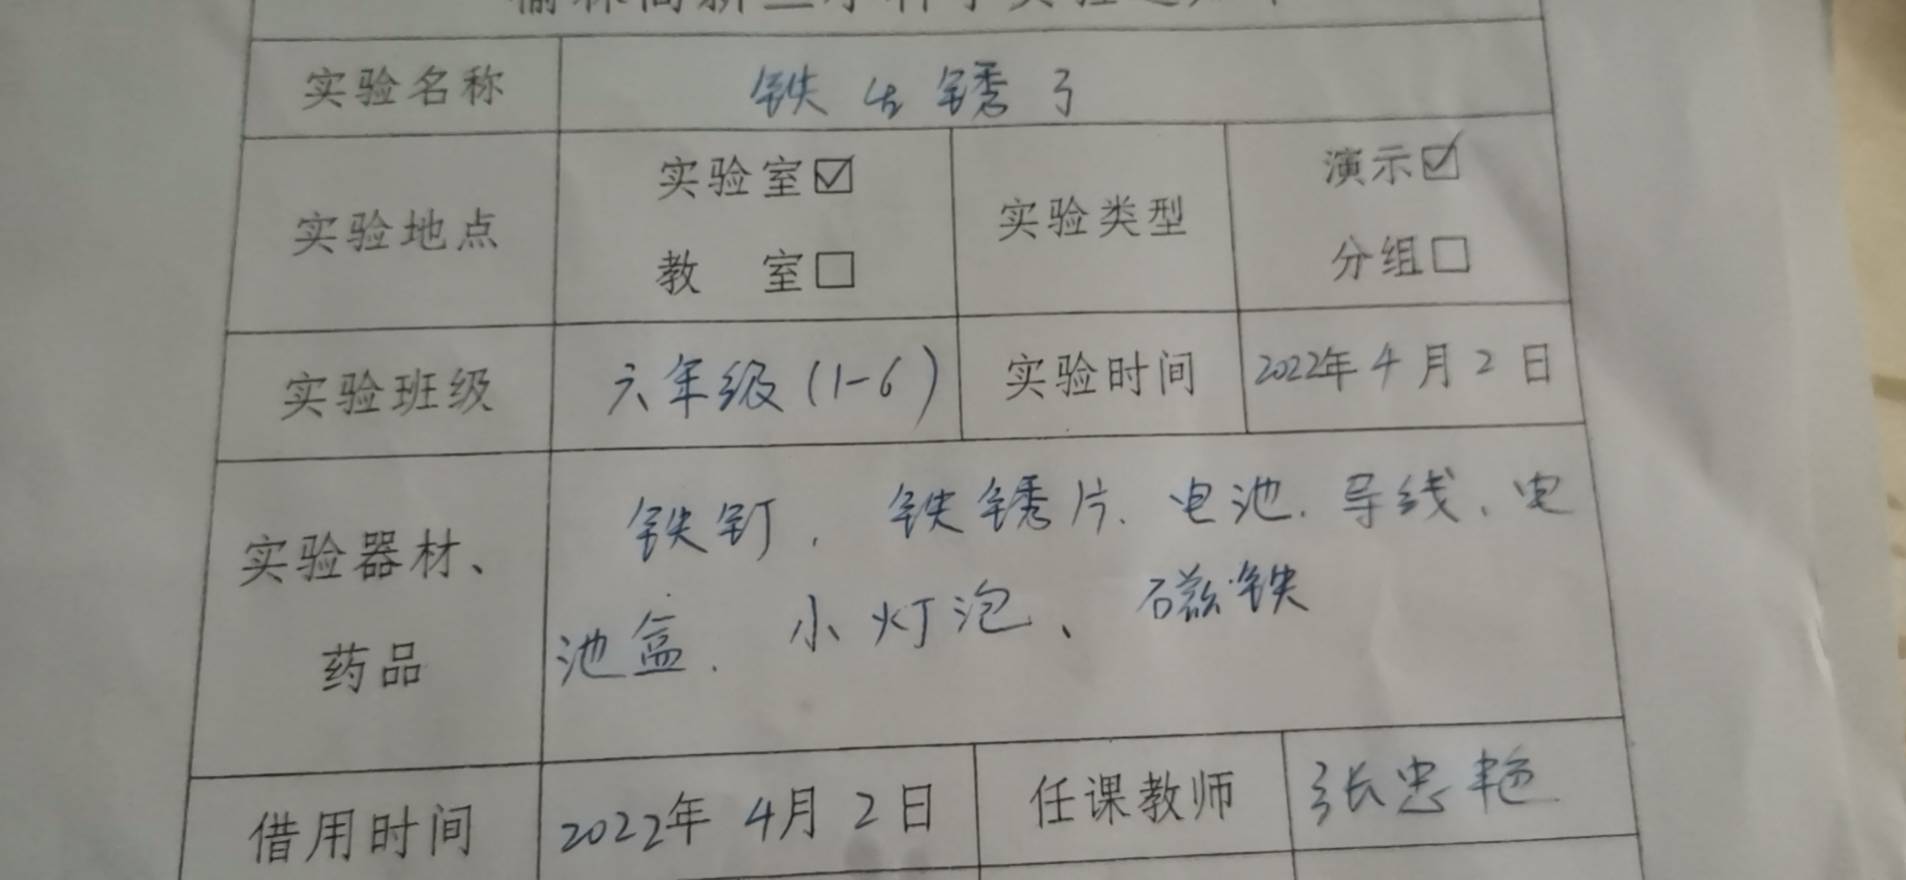 实验名称 铁生锈了
实验地点 实验室☑ 教 室□ 实验类型 演示☑ 分组□
实验班级 六年级(1-6) 实验时间 2022年4月2日
实验器材、药品 铁钉、铁锈片、电池、导线、电
池盒、小灯泡、磁铁
借用时间 2022年4月2日 任课教师 张忠艳